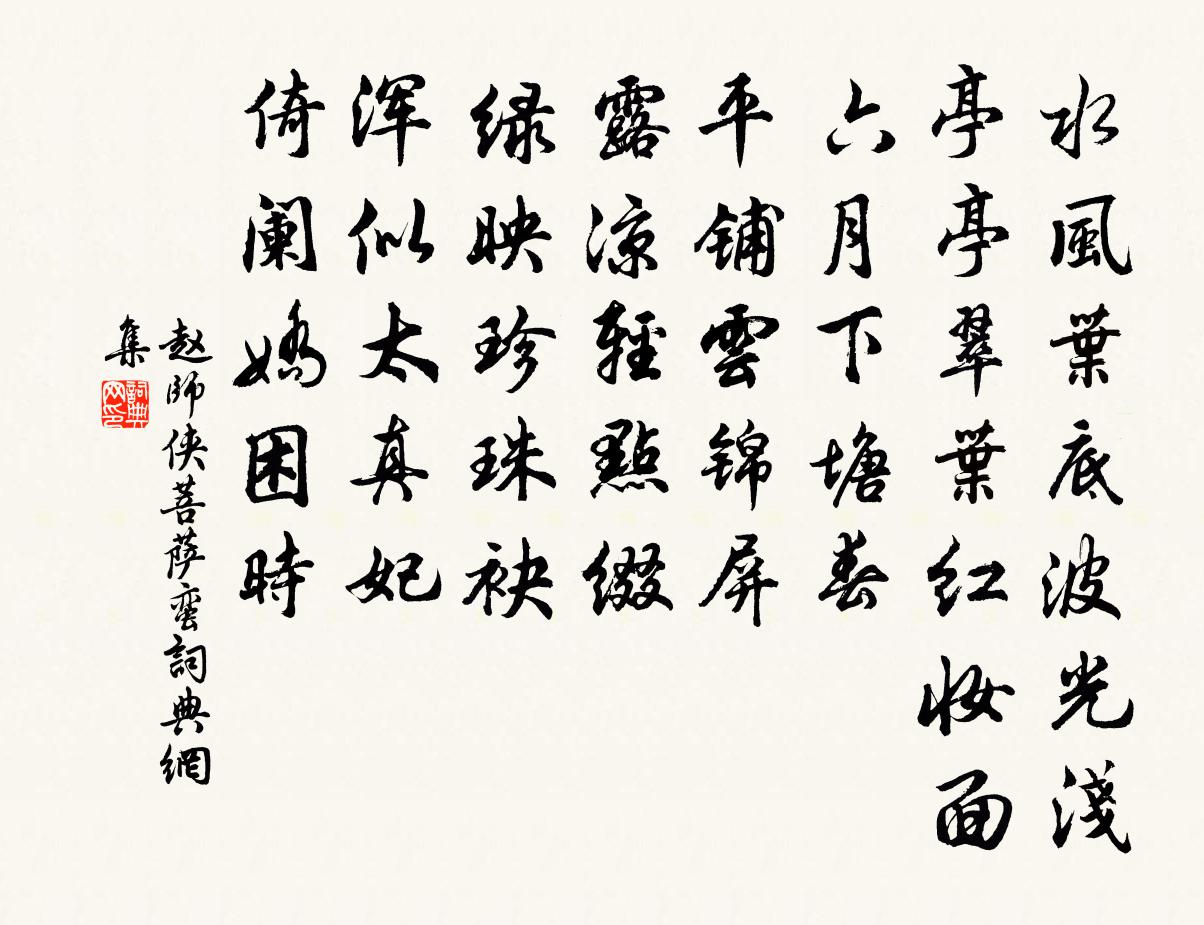 水風葉底波光淺
亭亭翠葉紅妝面
六月下塘春
平鋪雲錦屏
露涼輕點綴
緑映珍珠袂
渾似太真妃
倚闌嬌困時
赵師侠菩萨蛮詞典網
集
詞典
网印